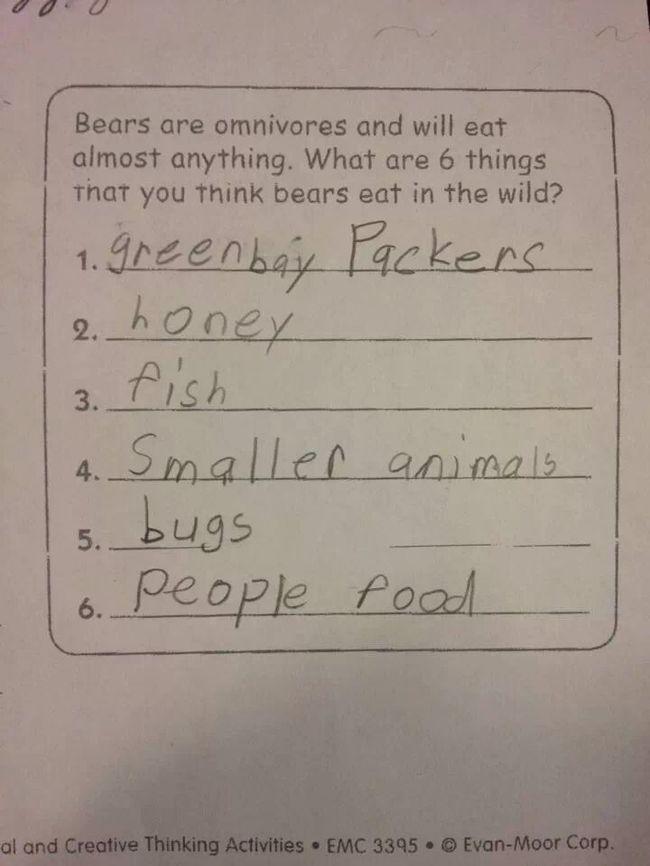 Bears are omnivores and will eat
almost anything. What are 6 things
that you think bears eat in the wild?
1. greenbay Packers
2. honey
3. fish
4. Smaller animals
5. bugs
6. People food
al and Creative Thinking Activities • EMC 3395 • © Evan-Moor Corp.